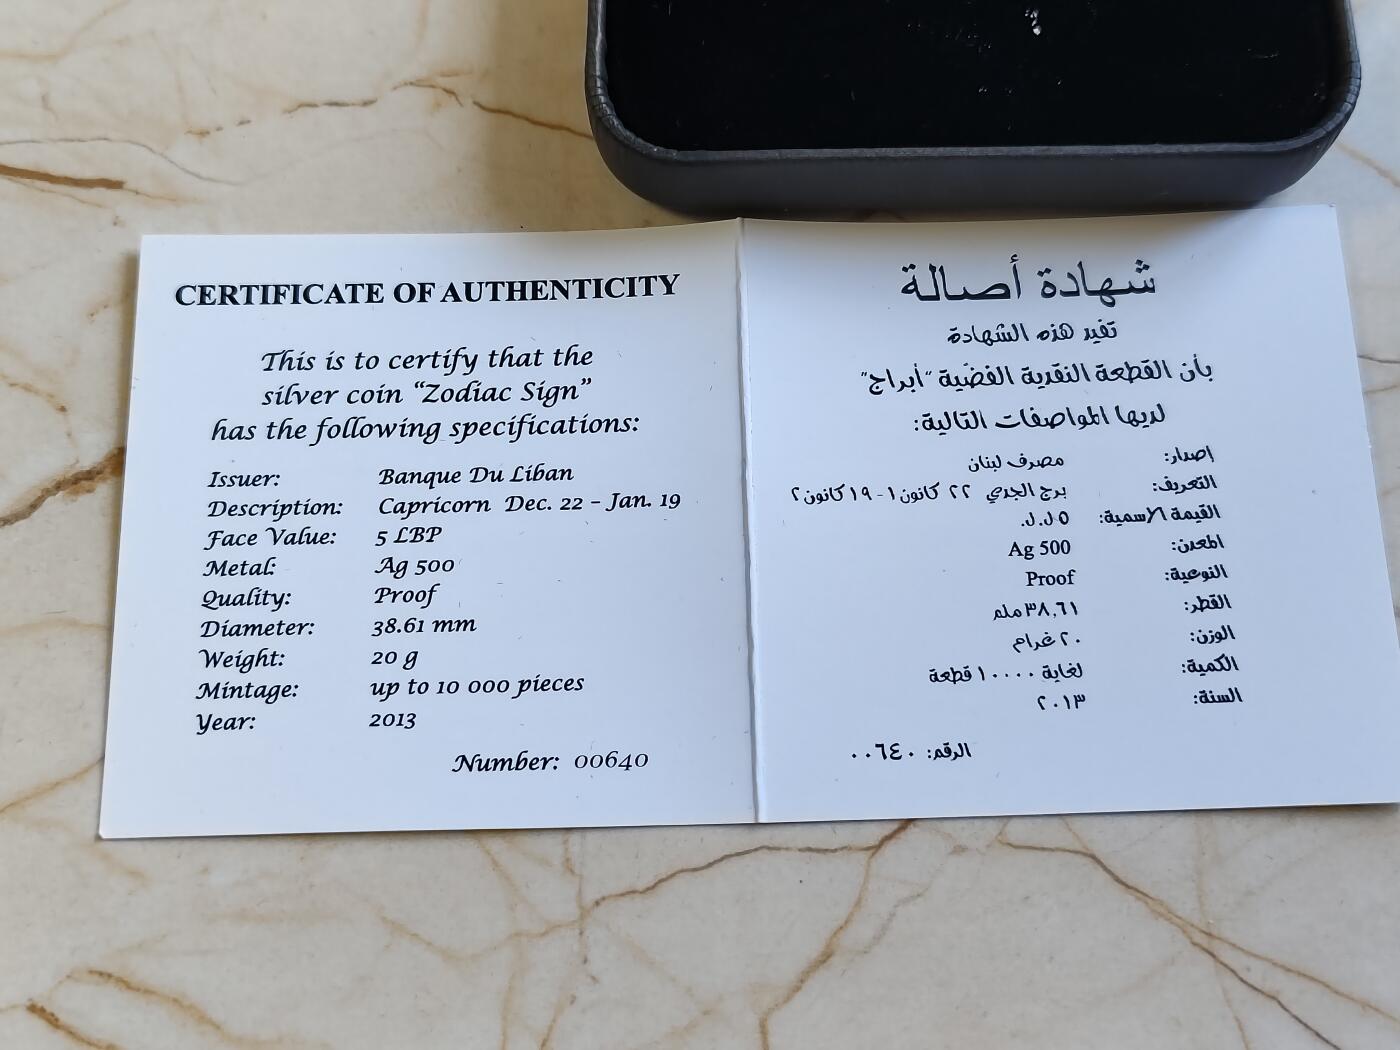 CERTIFICATE OF AUTHENTICITY
This is to certify that the
silver coin “Zodiac Sign”
has the following specifications:
Issuer: Banque Du Liban
Description: Capricorn Dec. 22 – Jan. 19
Face Value: 5 LBP
Metal: Ag 500
Quality: Proof
Diameter: 38.61 mm
Weight: 20 g
Mintage: up to 10 000 pieces
Year: 2013
Number: 00640
شهادة أصالة
تفيد هذه الشهادة
بأن القطعة النقدية الفضية "أبراج"
لديها المواصفات التالية:
إصدار: مصرف لبنان
التعريف: برج الجدي ٢٢ كانون١ - ١٩ كانون٢
القيمة الإسمية: ٥ ل.ل.
المعدن: Ag 500
النوعية: Proof
القطر: ٣٨,٦١ ملم
الوزن: ٢٠ غرام
الكمية: لغاية ١٠٠٠٠ قطعة
السنة: ٢٠١٣
الرقم: ٠٠٦٤٠